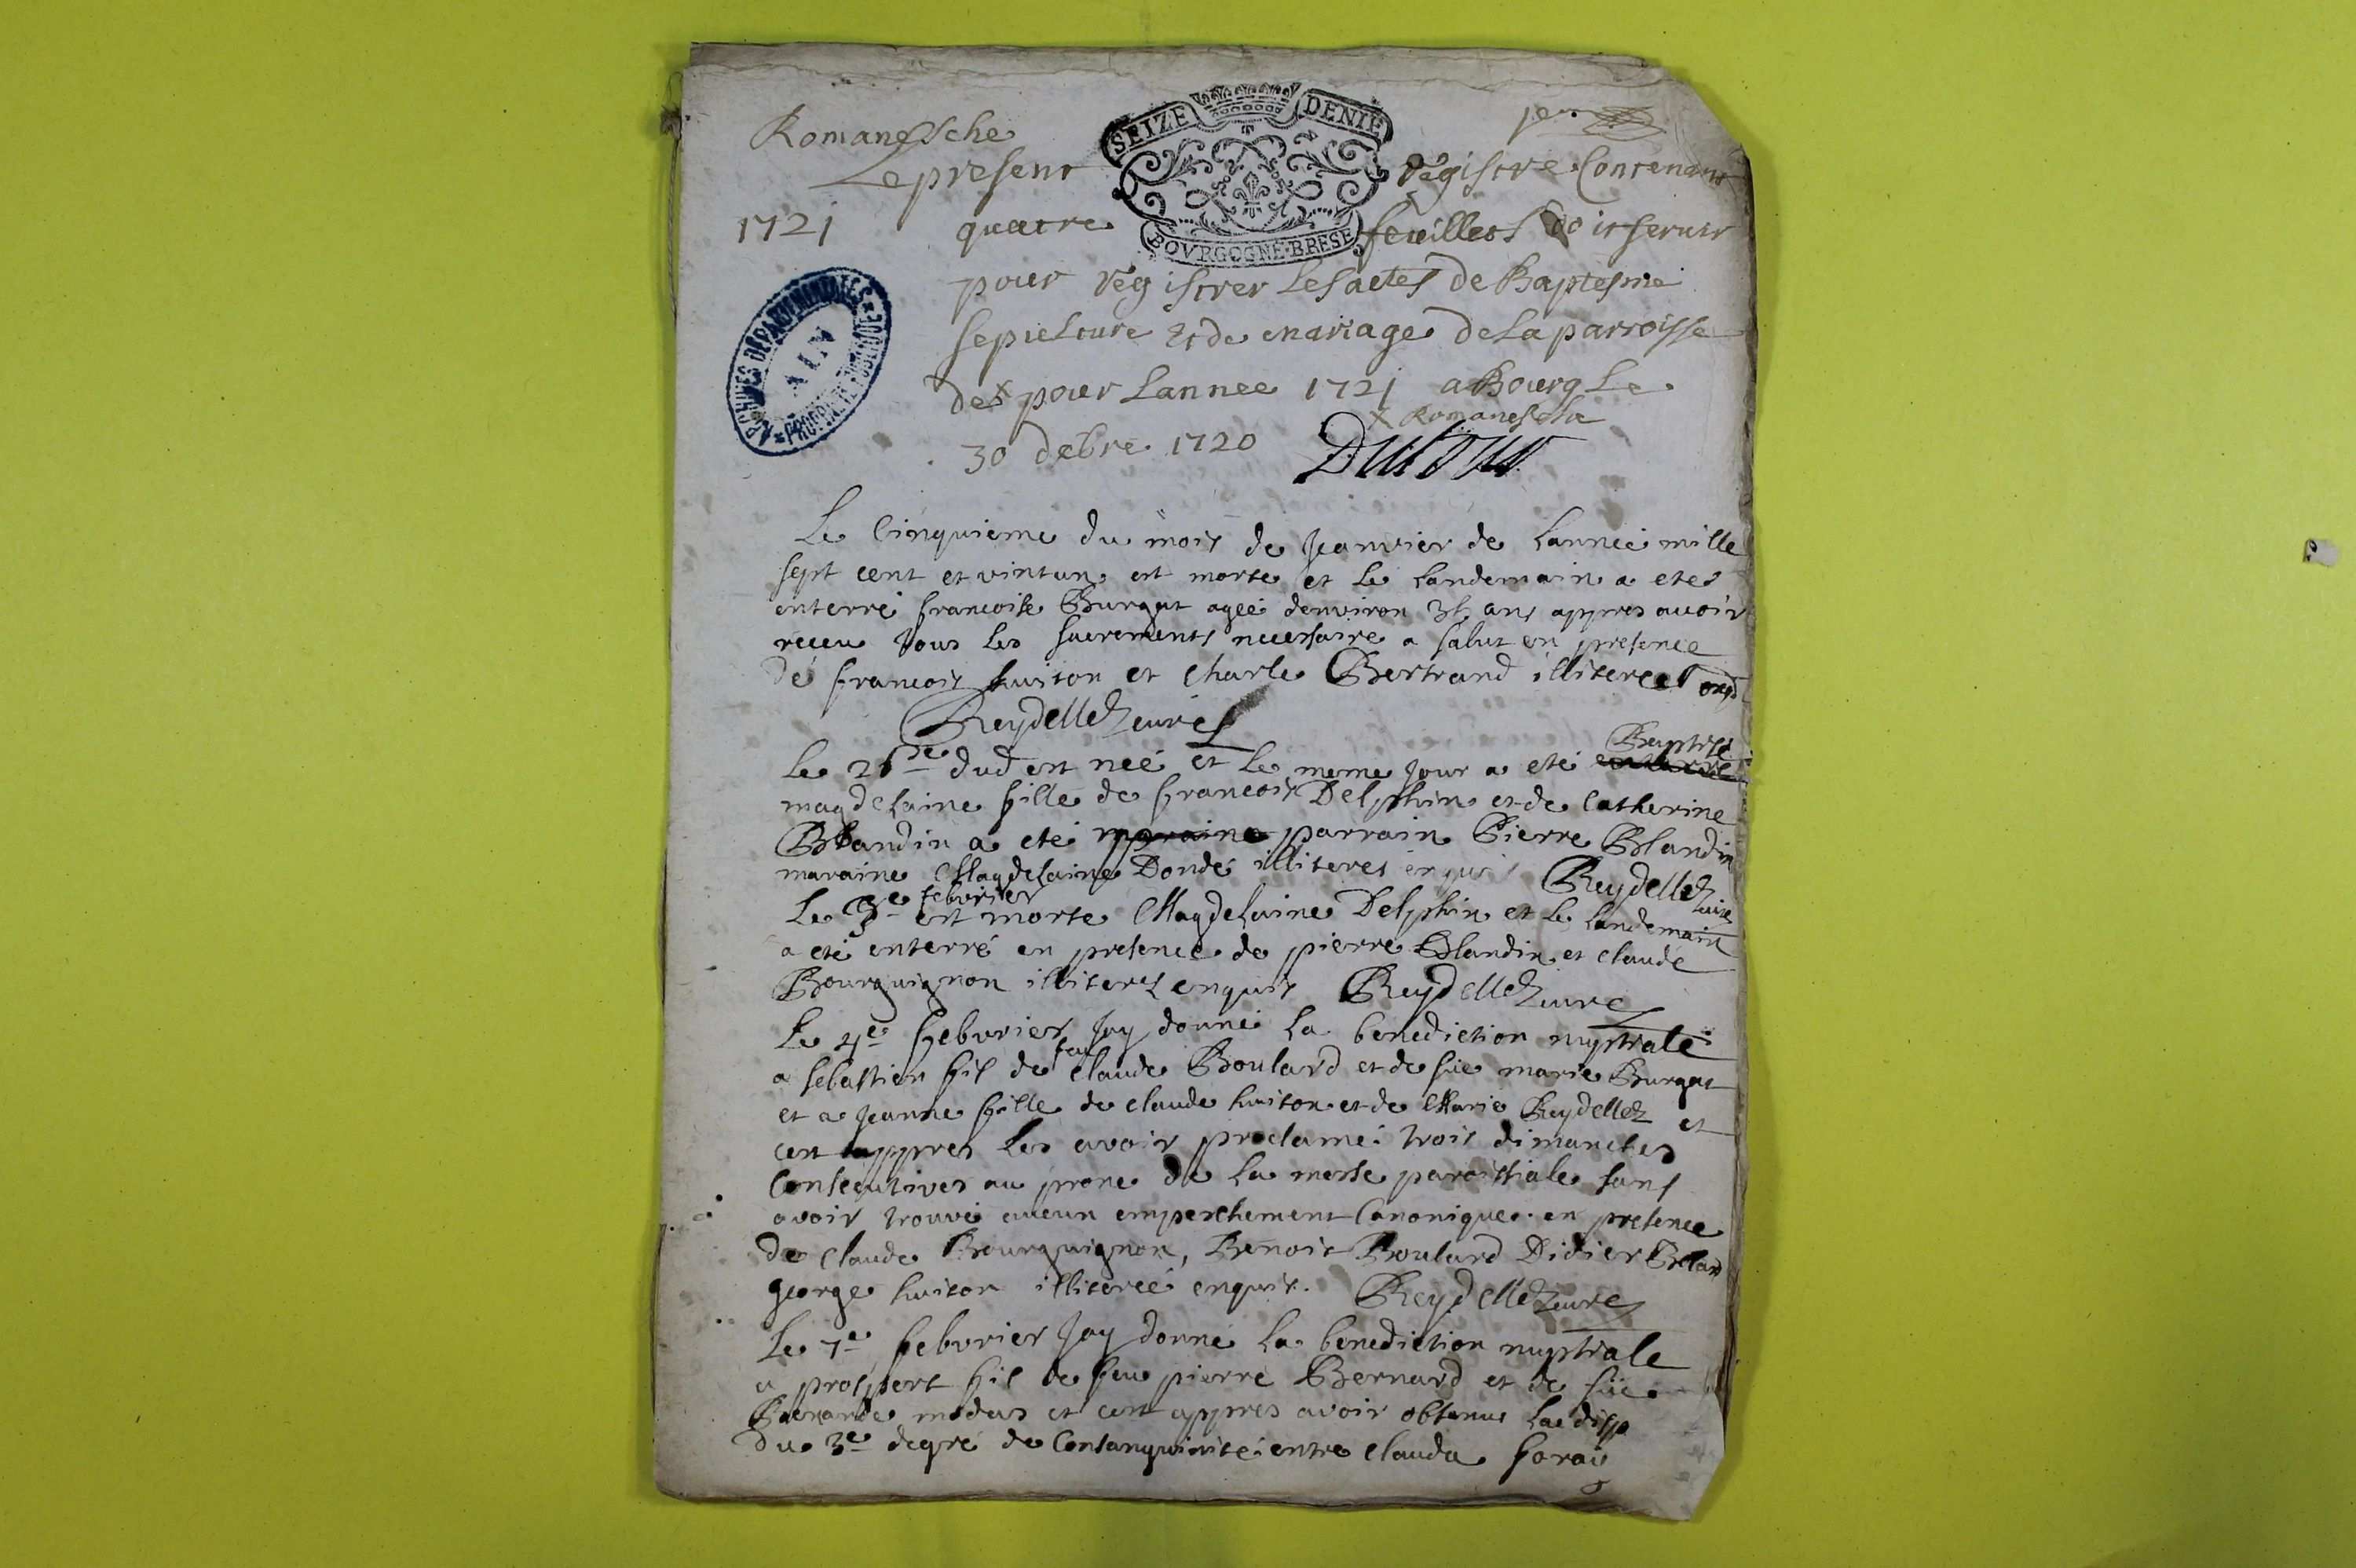 Romanesche
SEIZE DENIE
1er
Le present Registre Contenant
1721 quatre feuillets doit servir
BOVRGOGNE·BRESE
pour Registrer les actes de Baptesme
ARCHIVES DÉPARTEMENTALES
AIN
PROPRIÉTÉ PUBLIQUE
sepulture et de mariage de la parroisse
de x pour Lannee 1721 a Bourg Le
x Romanesche
30 debre 1720
Le Cinquieme du mois de Jeanvier de Lanneé mille
sept cent et vintun est morte et le Landemain a eté
enterré francoise Burgat ageé denviron ans appres avoir
receu tous les sacrements necessaire a salut en presence
de francois huiton et Charle Bertrand illitereé
Reydellet curé
Baptisé
Le dud est neé et le meme jour a eté
magdelaine fille de francois Delphin et de Catherine
Blandin a eté parrain Pierre Blandin
maraine Magdelaine Dondé illiteres enquis Reydellet curé
febvrier
Le 3e est morte Magdelaine Delphin et le landemain
a eté enterré en presence de pierre Blandin et claude
Bourguignon illiteres enquis Reydellet curé
Le 4e febvrier Jay donné La benediction nuptiale
feu
a sebastien fil de claude Boulard et de füe marie Burgat
et a Jeanne fille de claude huiton et de Marie Reydellet et
cest appres les avoir proclamé trois dimanches
Consecutives au prone de La messe paroissiale sans
avoir trouvé aucun empeschement Canonique en presence
de Claude Bourguignon, Benoit Boulard Didier
george huiton illitereé enquis. Reydellet curé
Le 7e febvrier Jay donné La benediction nuptiale
a prospert fil de feu pierre Bernard et de füe
et cest appres avoir obtenus La disp
du 3e degré de Consanguinité entre Clauda